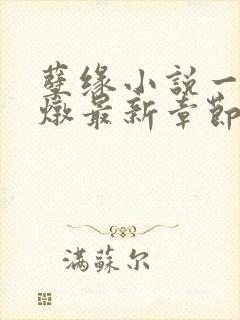 孽缘小説一
燉最新章節
满蘇尔